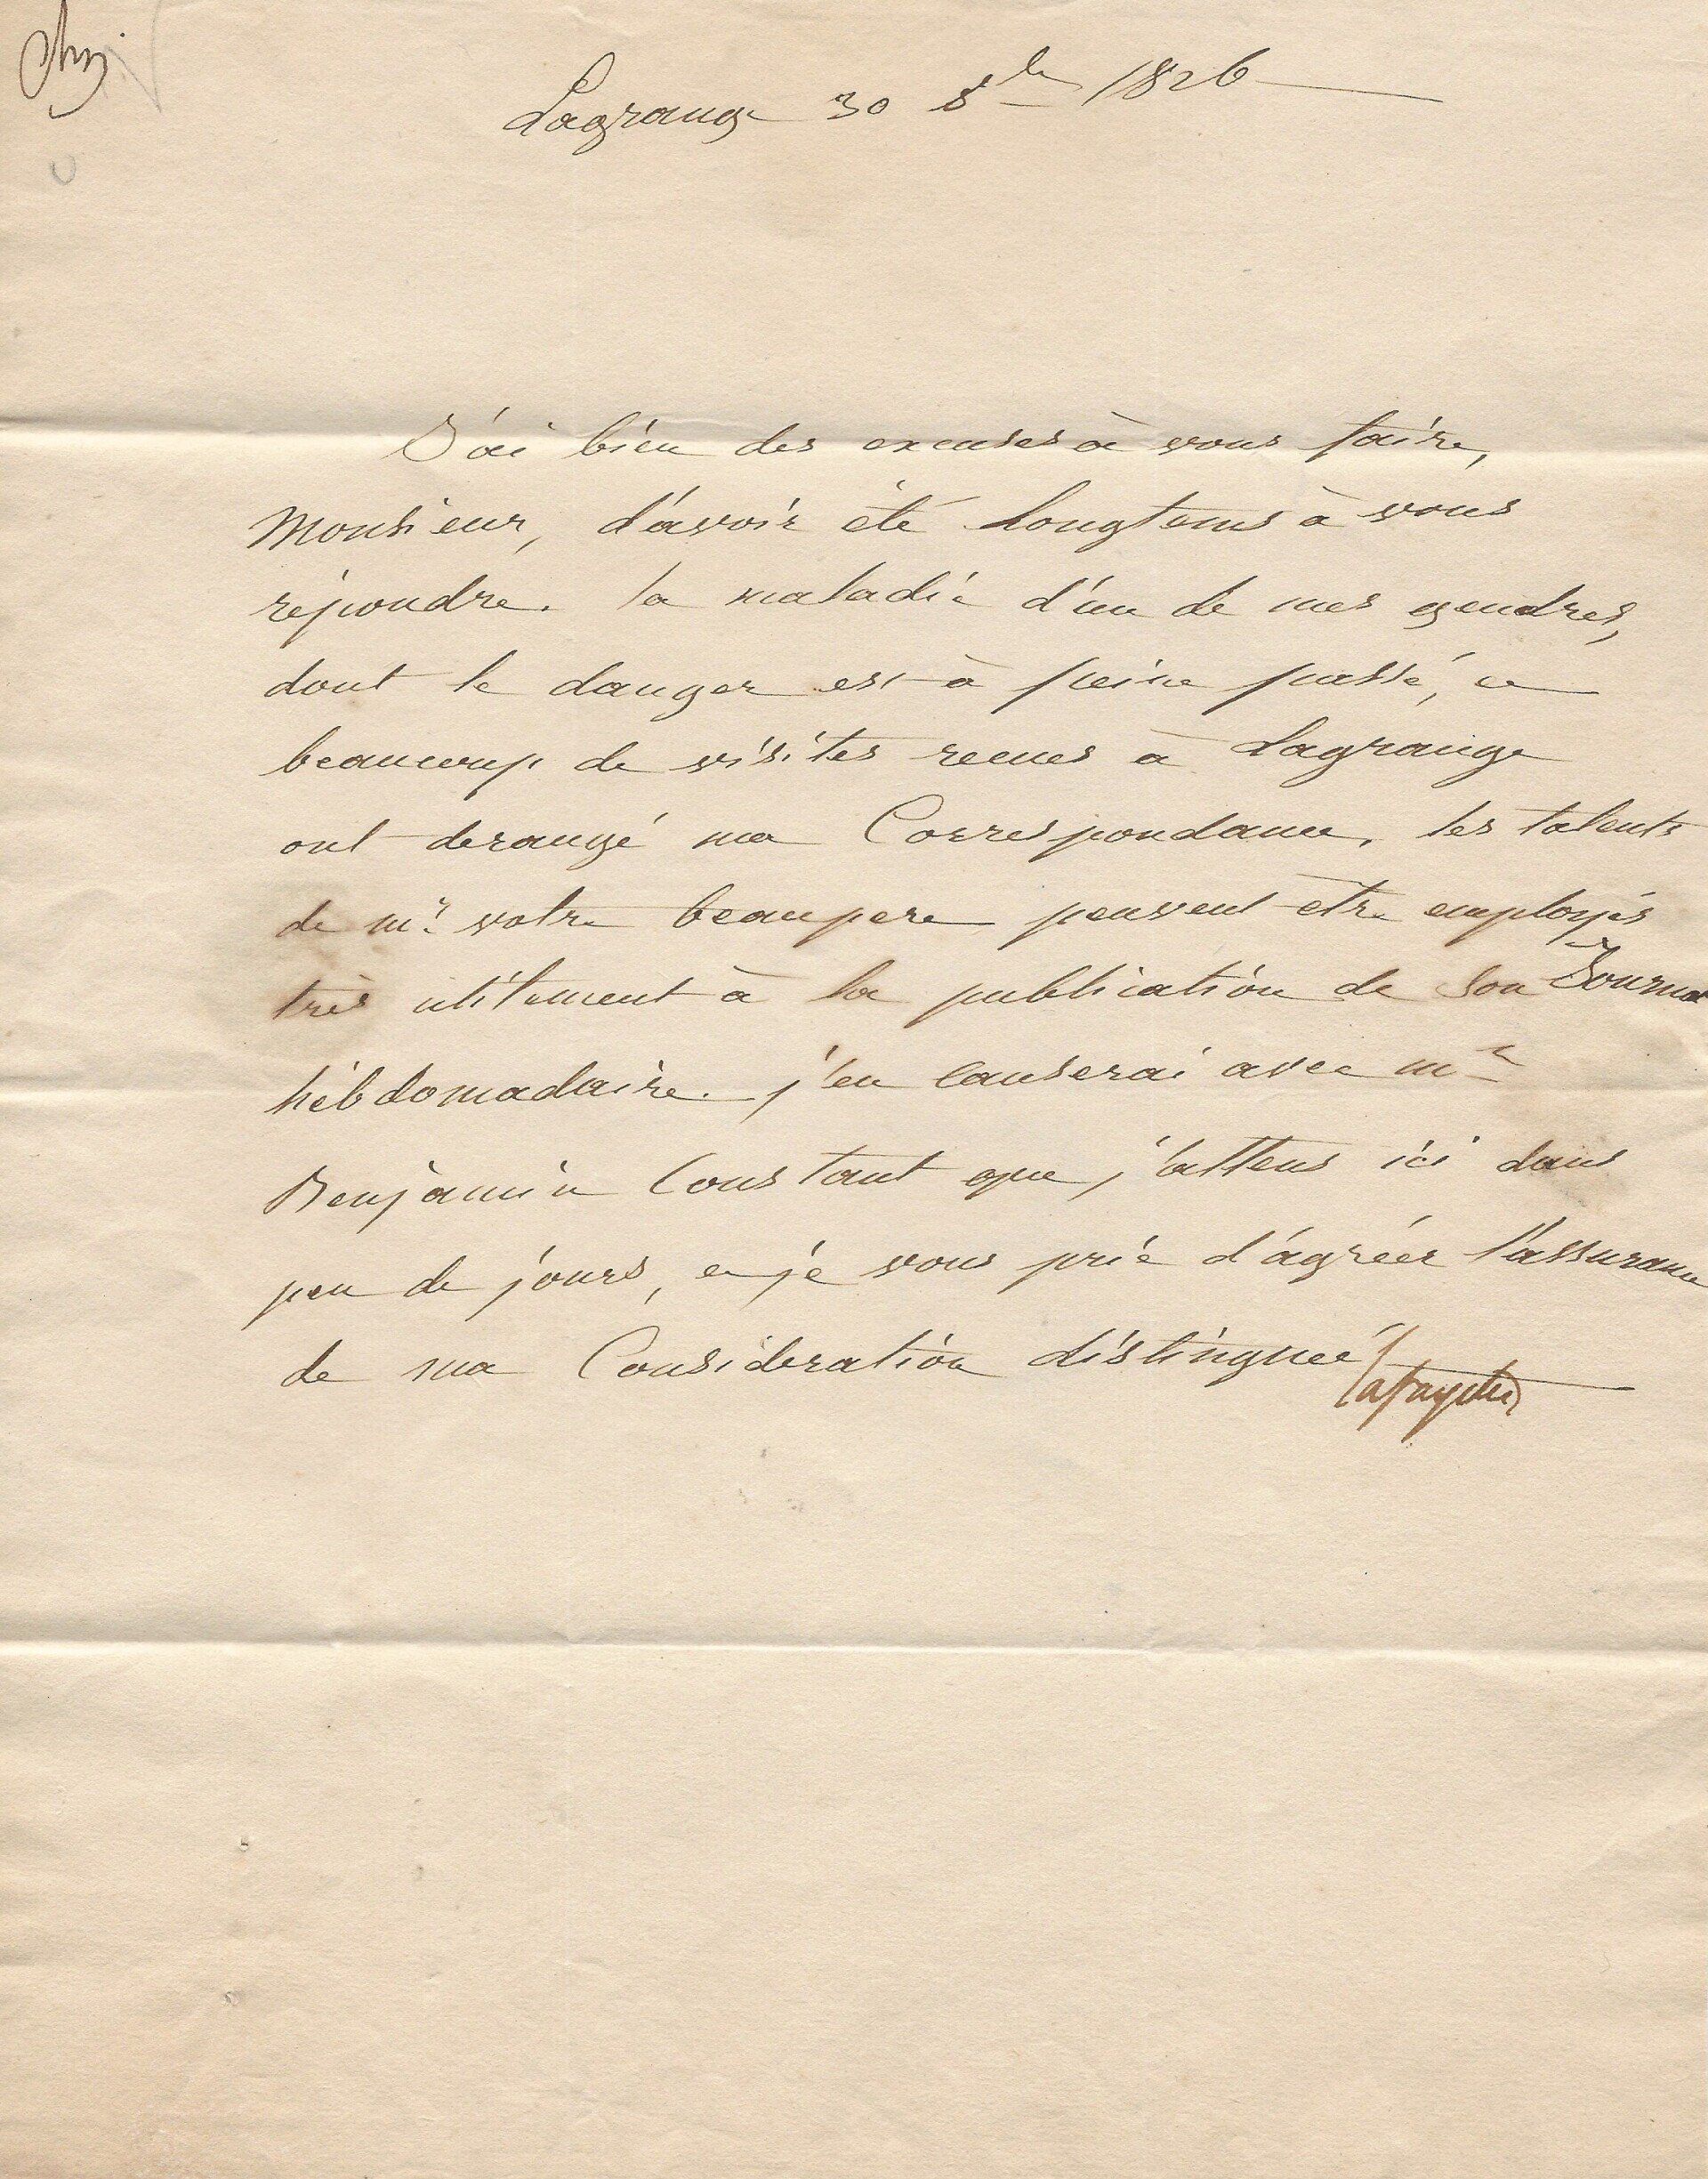 Lagrange 30 8bre 1826
J'ai bien des excuses à vous faire,
Monsieur, d'avoir été longtems à vous
répondre. la maladie d'un de mes gendres,
dont le danger est à peine passé, et
beaucoup de visites recues à Lagrange
ont derangé ma Correspondance. les talents
de mr. votre beaupere peuvent être employés
très utilement à la publication de son Journal
hébdomadaire. j'en causerai avec mr
Benjamin Constant que j'attens ici dans
peu de jours, et je vous prie d'agréer l'assurance
de ma Consideration distinguée
Lafayette